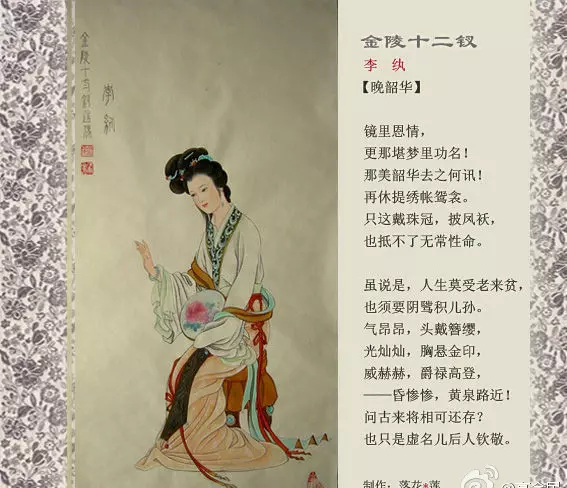 金陵十二钗
李 纨
【晚韶华】
镜里恩情，
更那堪梦里功名！
那美韶华去之何讯！
再休提绣帐鸳衾。
只这戴珠冠，披凤袄，
也抵不了无常性命。
虽说是，人生莫受老来贫，
也须要阴骘积儿孙。
气昂昂，头戴簪缨，
光灿灿，胸悬金印，
威赫赫，爵禄高登，
——昏惨惨，黄泉路近！
问古来将相可还存？
也只是虚名儿后人钦敬。
制作：落花*莲
李紈